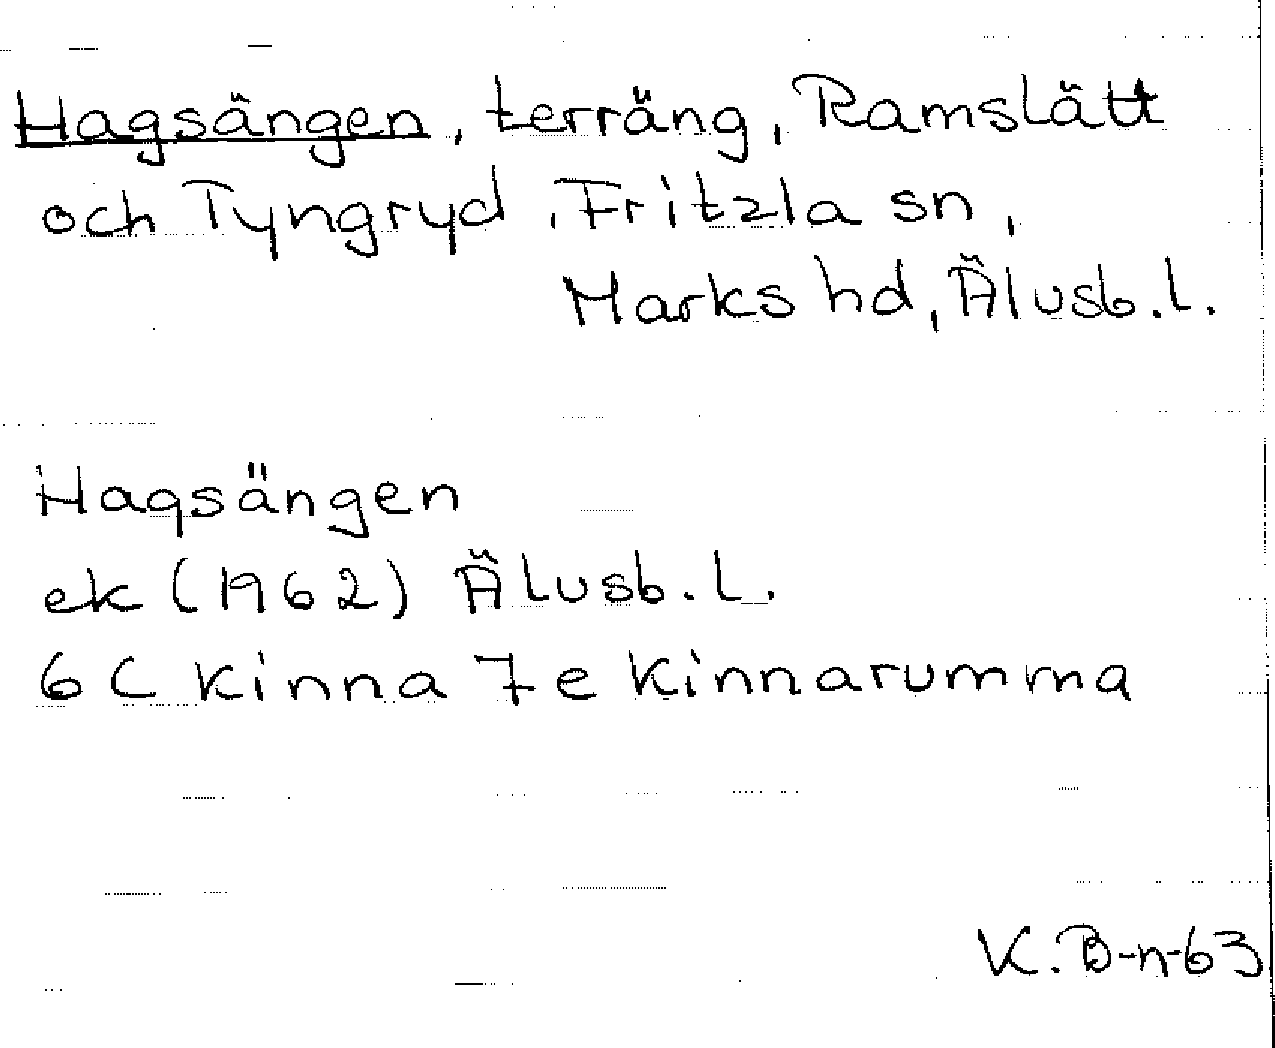 Hagsängen, terräng, Ramslätt
och Tyngryd, Fritzla sn,
Marks hd, Älvsb.l.
Hagsängen
ek (1962) Älvsb.L.
6 C Kinna 7e Kinnarumma
K.B-n-63